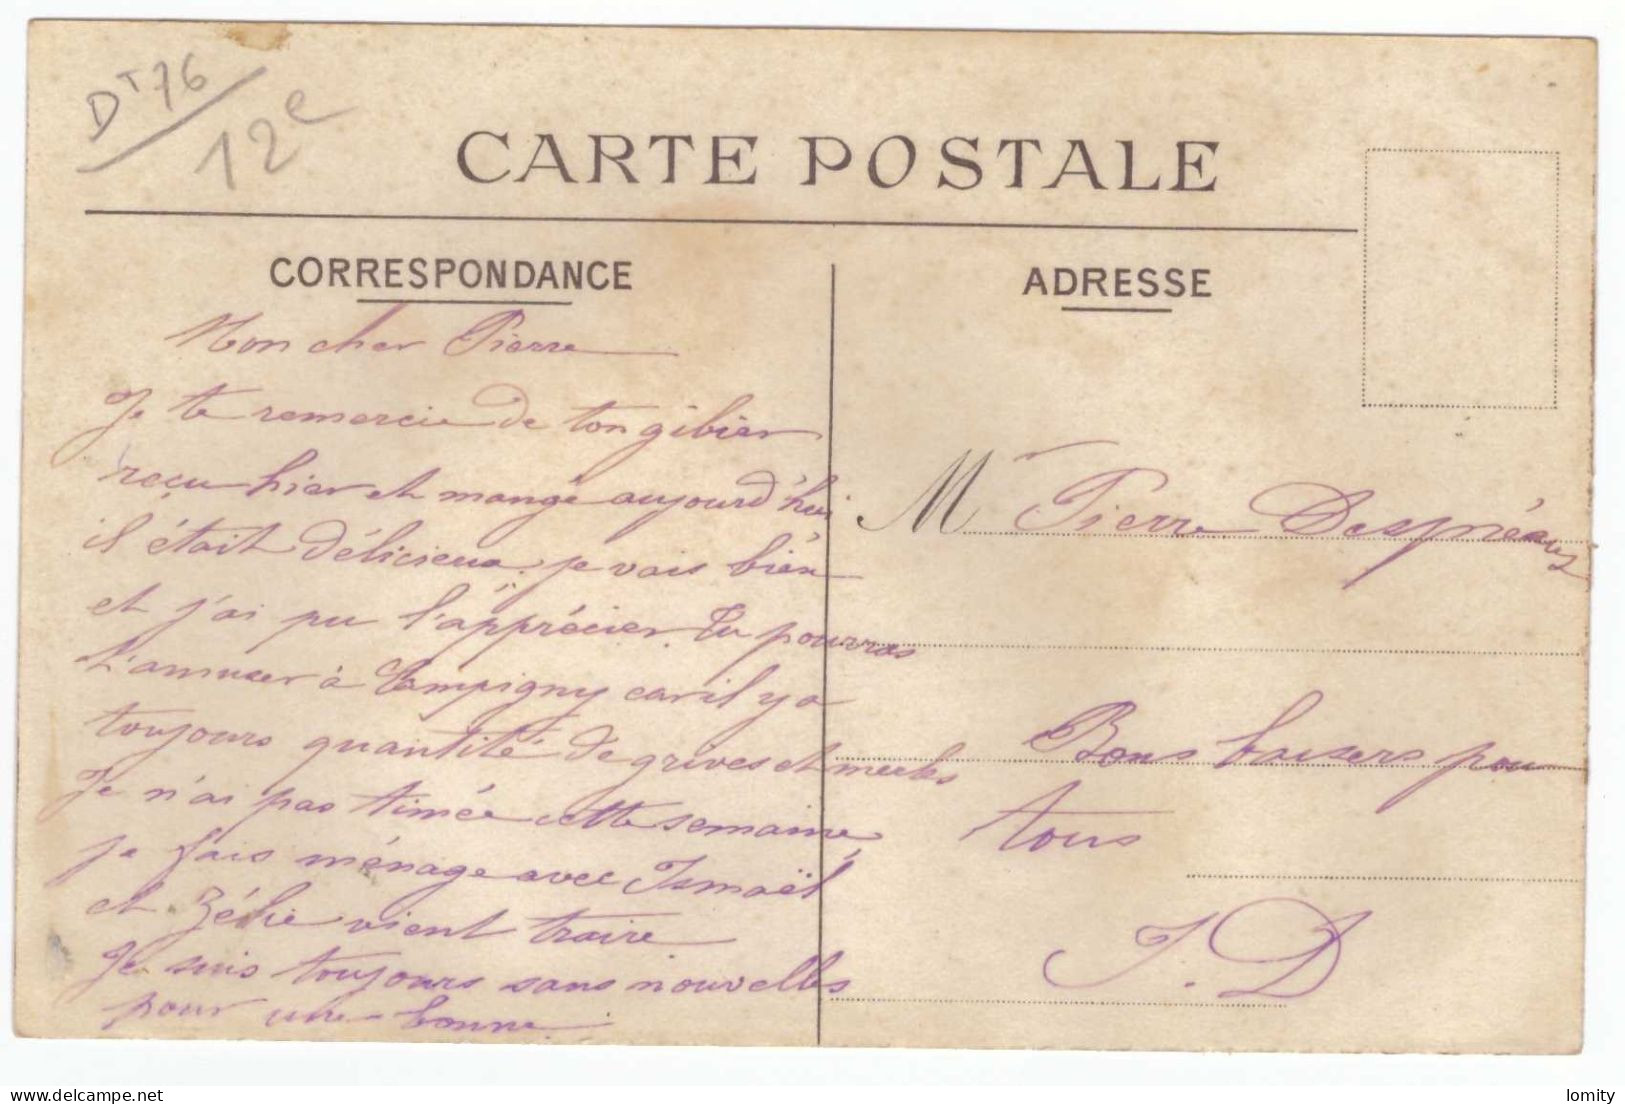 Dt 76
12e
CARTE POSTALE
CORRESPONDANCE
Mon cher Pierre
Je te remercie de ton gibier
reçu hier et mangé aujourd'hui
il était délicieux. je vais bien
et j'ai pu l'apprécier. Tu pourras
t'amuser à Campigny car il y a
toujours quantité de grives et merles
Je n'ai pas timée cette semaine,
je fais ménage avec Ismaël
et Zélie vient traire
Je suis toujours sans nouvelles
pour une bonne.
ADRESSE
Mr Pierre Despréaux
Bons baisers pour
tous
J. D
Delcampe.net
lomity